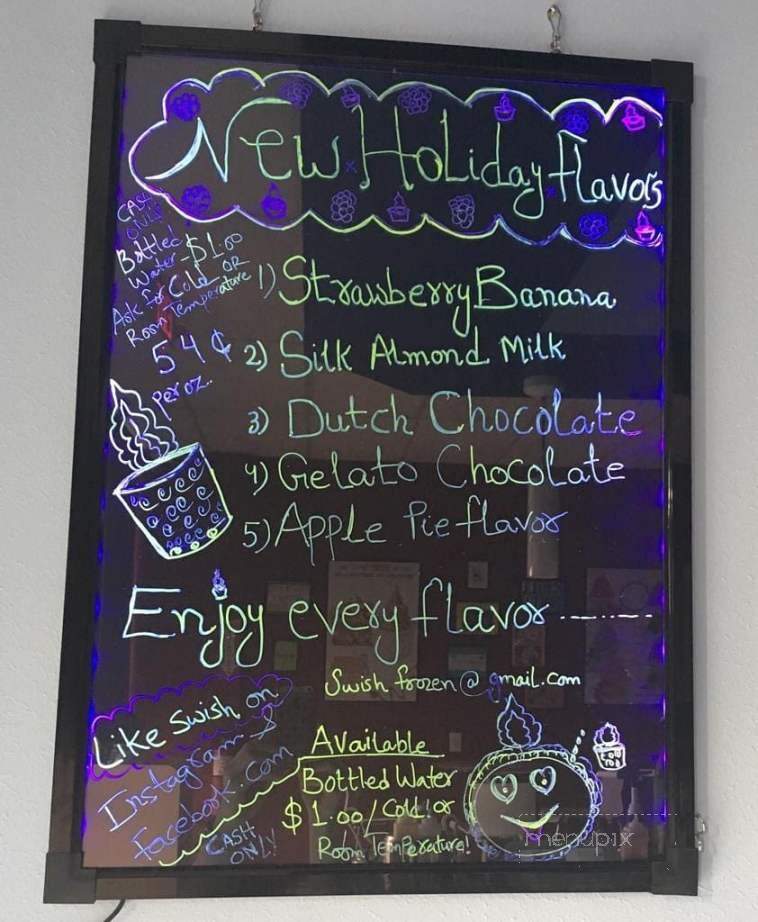 New Holiday flavors
CASH
ONLY
Bottled
Water - $1.00
Ask for Cold OR
Room Temperature
54¢
per oz..
1) Strawberry Banana
2) Silk Almond Milk
3) Dutch Chocolate
4) Gelato Chocolate
5) Apple Pie flavor
Enjoy every flavor
Swish frozen@gmail.com
Like Swish on
Instagram &
Facebook.com
CASH
ONLY
Available
Bottled Water
$1.00/Cold! or
Room Temperature!
menupix